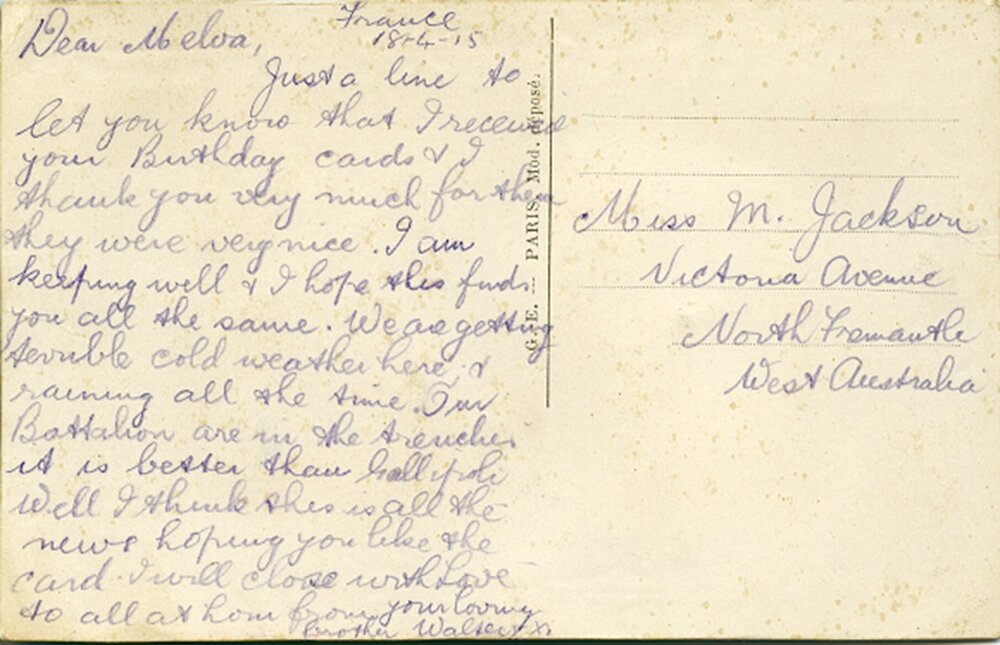 France
18-4-15
Dear Melva,
Just a line to
let you know that I received
your Birthday cards & I
thank you very much for them
they were very nice. I am
keeping well & I hope this finds
you all the same. We are getting
terrible cold weather here, &
raining all the time. Our
Battalion are in the trenches
it is better than Gallipoli
Well I think this is all the
news hoping you like the
card. I will close with Love
to all at hom from your loving
Brother Walter xx
G. E. — PARIS. Mod. déposé.
Miss M. Jackson
Victoria Avenue
North Fremantle
West Australia